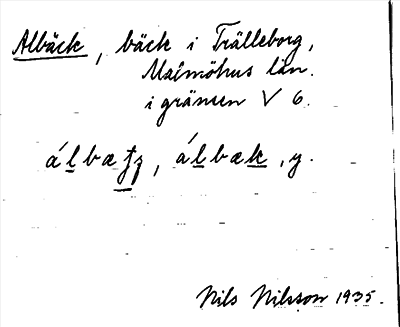 Albäck, bäck i Trälleborg,
Malmöhus län.
i gränsen V 6.
álbæʈʐ, álbæk, y.
Nils Nilsson 1935.